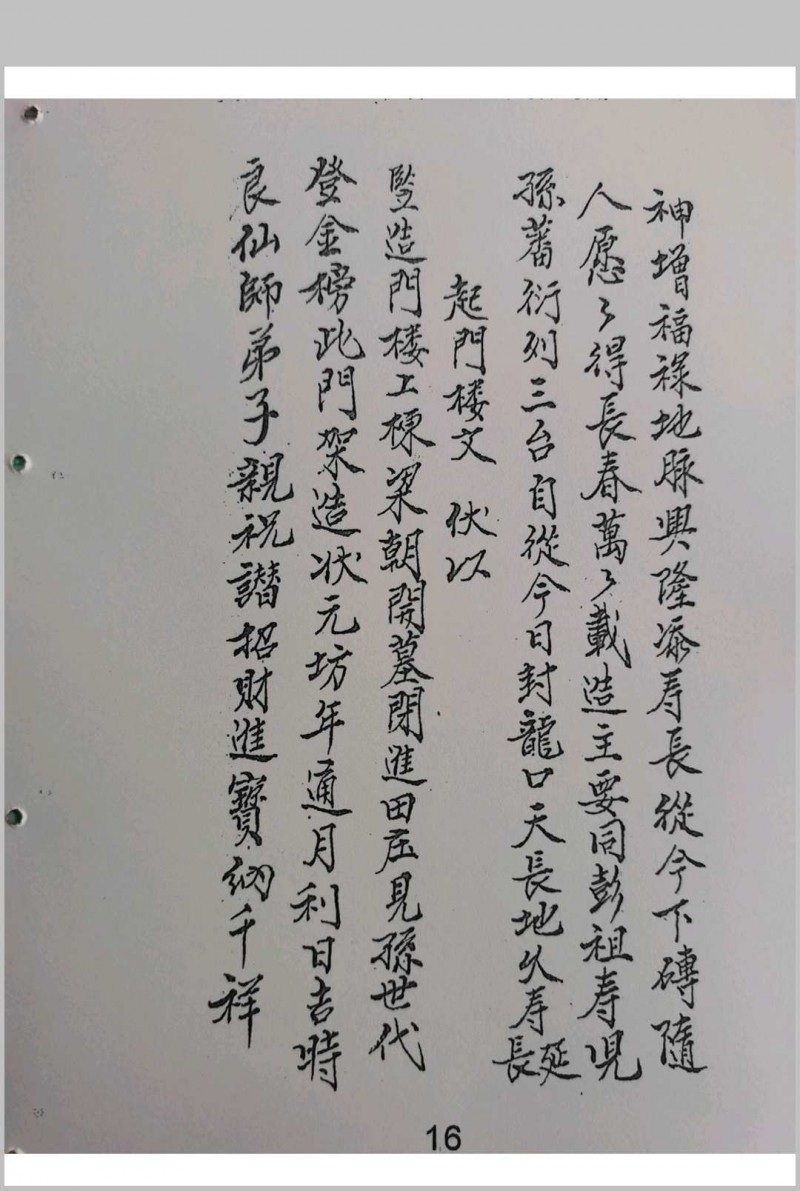 神增福祿地脉興隆添寿長從今下磚隨
人愿々得長春萬々載造主要同彭祖寿児
孫蕃衍列三台自從今日封龍口天長地久寿長延
起門楼文　伏以
竪造門楼工棟梁朝開墓閉進田庄見孫世代
登金榜此門架造状元坊年通月利日吉時
良仙師弟子親祝讃招財進寳納千祥
16